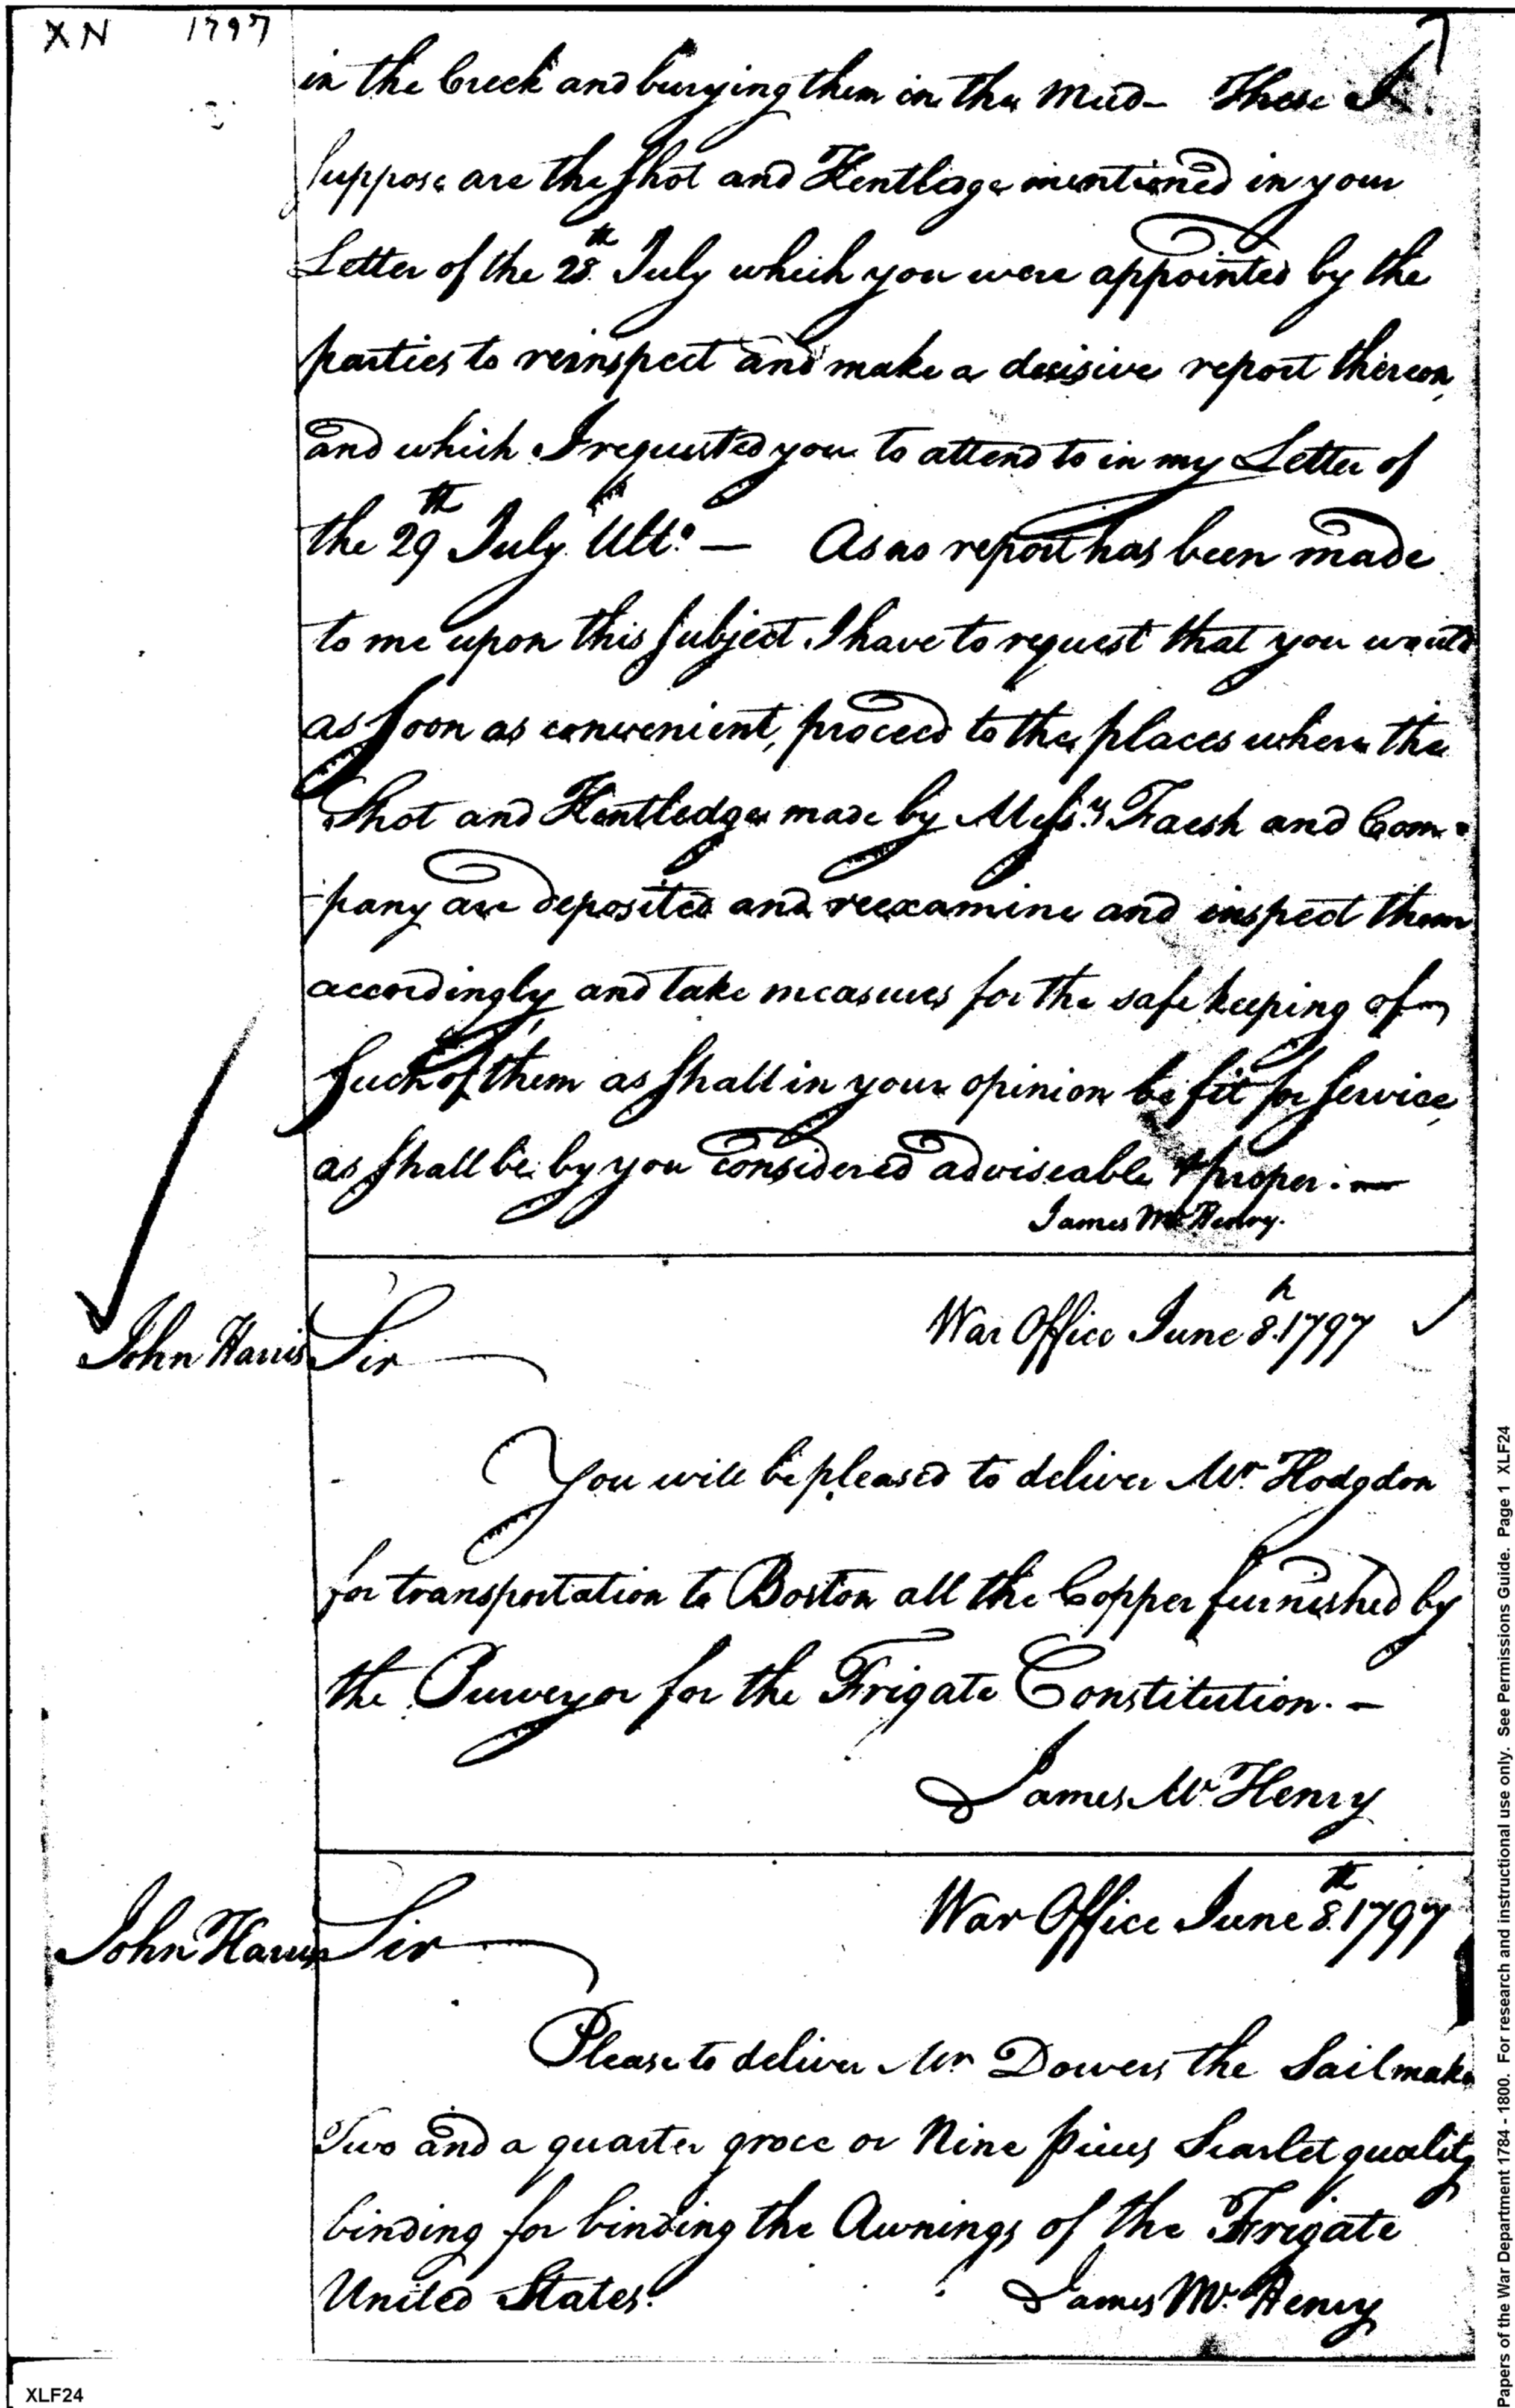 XN 1797
in the Creek and burying them in the Mud - These I
suppose are the shot and Kentledge mentioned in your
Letter of the 28th July which you were appointed by the
parties to reinspect and make a decisive report thereon,
and which I requested you to attend to in my Letter of
the 29th July Ulto. — As no report has been made
to me upon this subject I have to request that you would
as soon as convenient, proceed to the places where the
Shot and Kentledge made by Messrs Faesh and Com=
pany are deposited and reexamine and inspect them
accordingly and take measures for the safe keeping of
such of them as shall in your opinion be fit for service,
as shall be by you considered adviseable & proper. —
James McHenry.
John Harris
Sir
War Office June 8h. 1797
You will be pleased to deliver Mr. Hodgdon
for transportation to Boston all the Copper furnished by
the Purveyor for the Frigate Constitution. —
James McHenry
John Harris
Sir
War Office June 8th. 1797
Please to deliver Mr Dowers the Sailmaker
Two and a quarter groce or Nine pieces Scarlet quality
binding for binding the Awnings of the Frigate
United States.
James McHenry
XLF24
Papers of the War Department 1784 - 1800. For research and instructional use only. See Permissions Guide. Page 1 XLF24